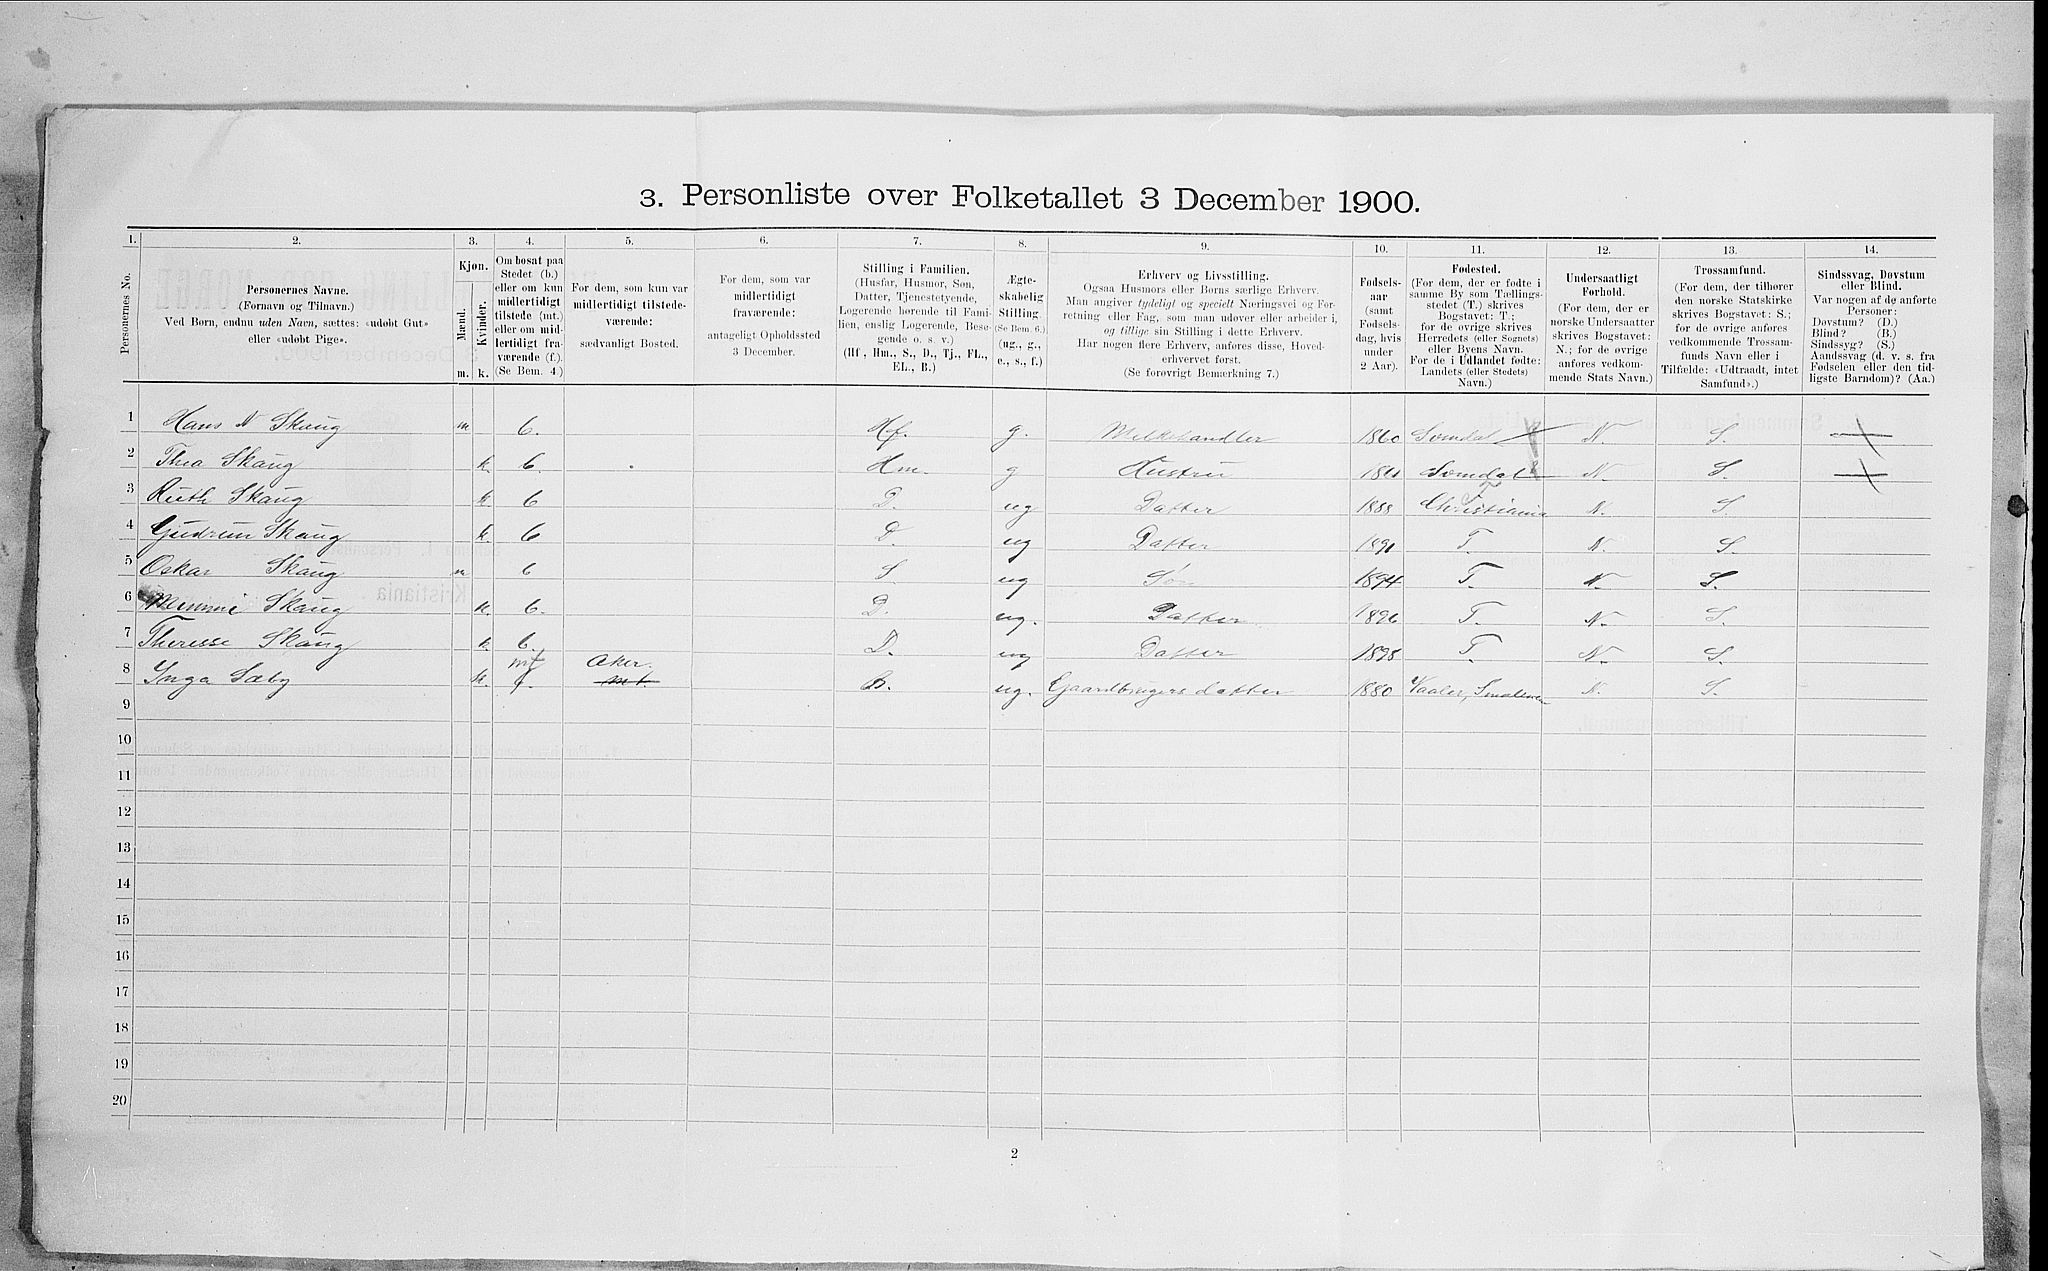 3. Personliste over Folketallet 3 December 1900.
1. 2. 3. 4. 5. 6. 7. 8. 9. 10. 11. 12. 13. 14.
Personernes No.
Personernes Navne.
(Fornavn og Tilnavn.)
Ved Børn, endnu uden Navn, sættes: «udøbt Gut»
eller «udøbt Pige».
Kjøn.
Mænd.
Kvinder.
m. k.
Om bosat paa
Stedet (b.)
eller om kun
midlertidigt
tilstede (mt.)
eller om mid-
lertidigt fra-
værende (f.)
(Se Bem. 4.)
For dem, som kun var
midlertidigt tilstede-
værende:
sædvanligt Bosted.
For dem, som var
midlertidigt
fraværende:
antageligt Opholdssted
3 December.
Stilling i Familien.
(Husfar, Husmor, Søn,
Datter, Tjenestetyende,
Logerende hørende til Fami-
lien, enslig Logerende, Besø-
gende o. s. v.)
(Hf., Hm., S., D., Tj., FL.,
EL., B.)
Ægte-
skabelig
Stilling.
(Se Bem. 6.)
(ug., g.,
e., s., f.)
Erhverv og Livsstilling.
Ogsaa Husmors eller Børns særlige Erhverv.
Man angiver tydeligt og specielt Næringsvei og For-
retning eller Fag, som man udøver eller arbeider i,
og tillige sin Stilling i dette Erhverv.
Har nogen flere Erhverv, anføres disse, Hoved-
erhvervet først.
(Se forøvrigt Bemærkning 7.)
Fødsels-
aar
(samt
Fødsels-
dag, hvis
under
2 Aar).
Fødested.
(For dem, der er fødte i
samme By som Tællings-
stedet (T.) skrives
Bogstavet: T.;
for de øvrige skrives
Herredets (eller Sognets)
eller Byens Navn.
For de i Udlandet fødte:
Landets (eller Stedets)
Navn.)
Undersaatligt
Forhold.
(For dem, der er
norske Undersaatter
skrives Bogstavet:
N.; for de øvrige
anføres vedkom-
mende Stats Navn.)
Trossamfund.
(For dem, der tilhører
den norske Statskirke
skrives Bogstavet: S.;
for de øvrige anføres
vedkommende Trossam-
funds Navn eller i
Tilfælde: «Udtraadt, intet
Samfund».)
Sindssvag, Døvstum
eller Blind.
Var nogen af de anførte
Personer:
Døvstum? (D.)
Blind? (B.)
Sindssyg? (S.)
Aandssvag (d. v. s. fra
Fødselen eller den tid-
ligste Barndom)? (Aa.)
1 Hans N Skaug m b. Hf. g. Melkehandler 1860 N. S.
2 Thea Skaug k. b. Hm. g Hustru N. S.
3 Ruth Skaug k. b D. ug Datter 1888 T Christiania N. S.
4 Gudrun Skaug k. b D. ug Datter T. N. S.
5 Oskar Skaug m b S ug Søn 1894 T. N. S.
6 Mimmi Skaug k. b. D. ug. Datter 1896 T. N. S.
7 Theresse Skaug k b. D. ug Datter 1898 T. N. S.
8 Inga Sæby k. mt f. Aker. mt. B. ug. Gaardbrugers datter 1880 Vaaler, Smalenene N. S.
9
10
11
12
13
14
15
16
17
18
19
20
2